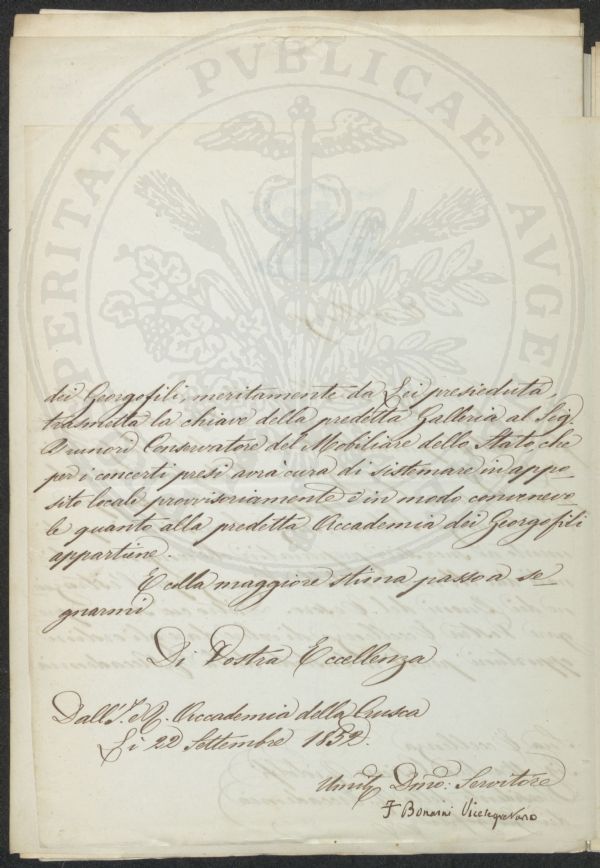 PROSPERITATI PVBLICAE AVGENDAE
dei Georgofili, meritamente da Lei presieduta,
trasmetta la chiave della predetta Galleria al Sig.
Brunori Conservatore del Mobiliare dello Stato, che
per i concerti presi avrà cura di sistemare in appo-
sito locale provvisoriamente e in modo convenevo-
le quanto alla predetta Accademia dei Georgofili
appartiene.
E colla maggiore stima passo a se-
gnarmi
Di Vostra Eccellenza
Dall'I. e R. Accademia della Crusca
Li 22 Settembre 1852.
Dmo: Servitore
F Bonaini Vicesegretario